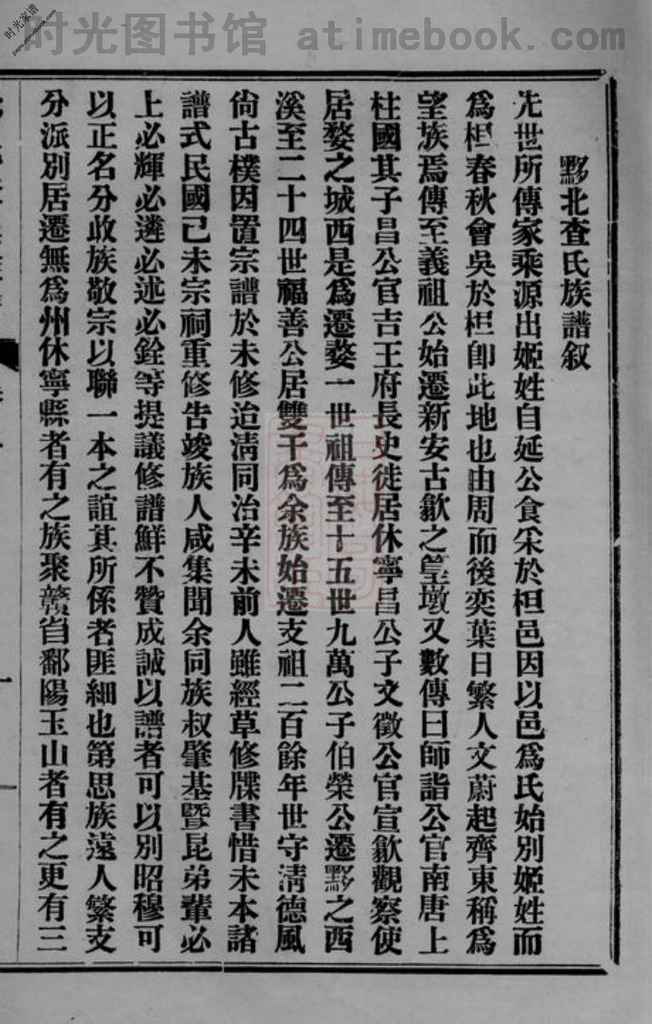 时光图书馆 atimebook.com
时光家谱
黟北查氏族譜叙
先世所傳家乘源出姬姓自延公食采於柤邑因以邑爲氏始別姬姓而
爲柤春秋會吳於柤卽此地也由周而後奕葉日繁人文蔚起齊東稱爲
望族焉傳至義祖公始遷新安古歙之篁墩又數傳曰師詣公官南唐上
柱國其子昌公官吉王府長史徙居休寧昌公子文徵公官宣歙觀察使
居婺之城西是爲遷婺一世祖傳至十五世九萬公子伯榮公遷黟之西
溪至二十四世福善公居雙干爲余族始遷支祖二百餘年世守淸德風
尙古樸因置宗譜於未修迨淸同治辛未前人雖經草修牒書惜未本諸
譜式民國己未宗祠重修吿竣族人咸集聞余同族叔肇基暨昆弟輩必
上必輝必遴必述必銓等提議修譜鮮不贊成誠以譜者可以別昭穆可
以正名分收族敬宗以聯一本之誼其所係者匪細也第思族遠人繁支
分派別居遷無爲州休寧縣者有之族聚贛省鄱陽玉山者有之更有三